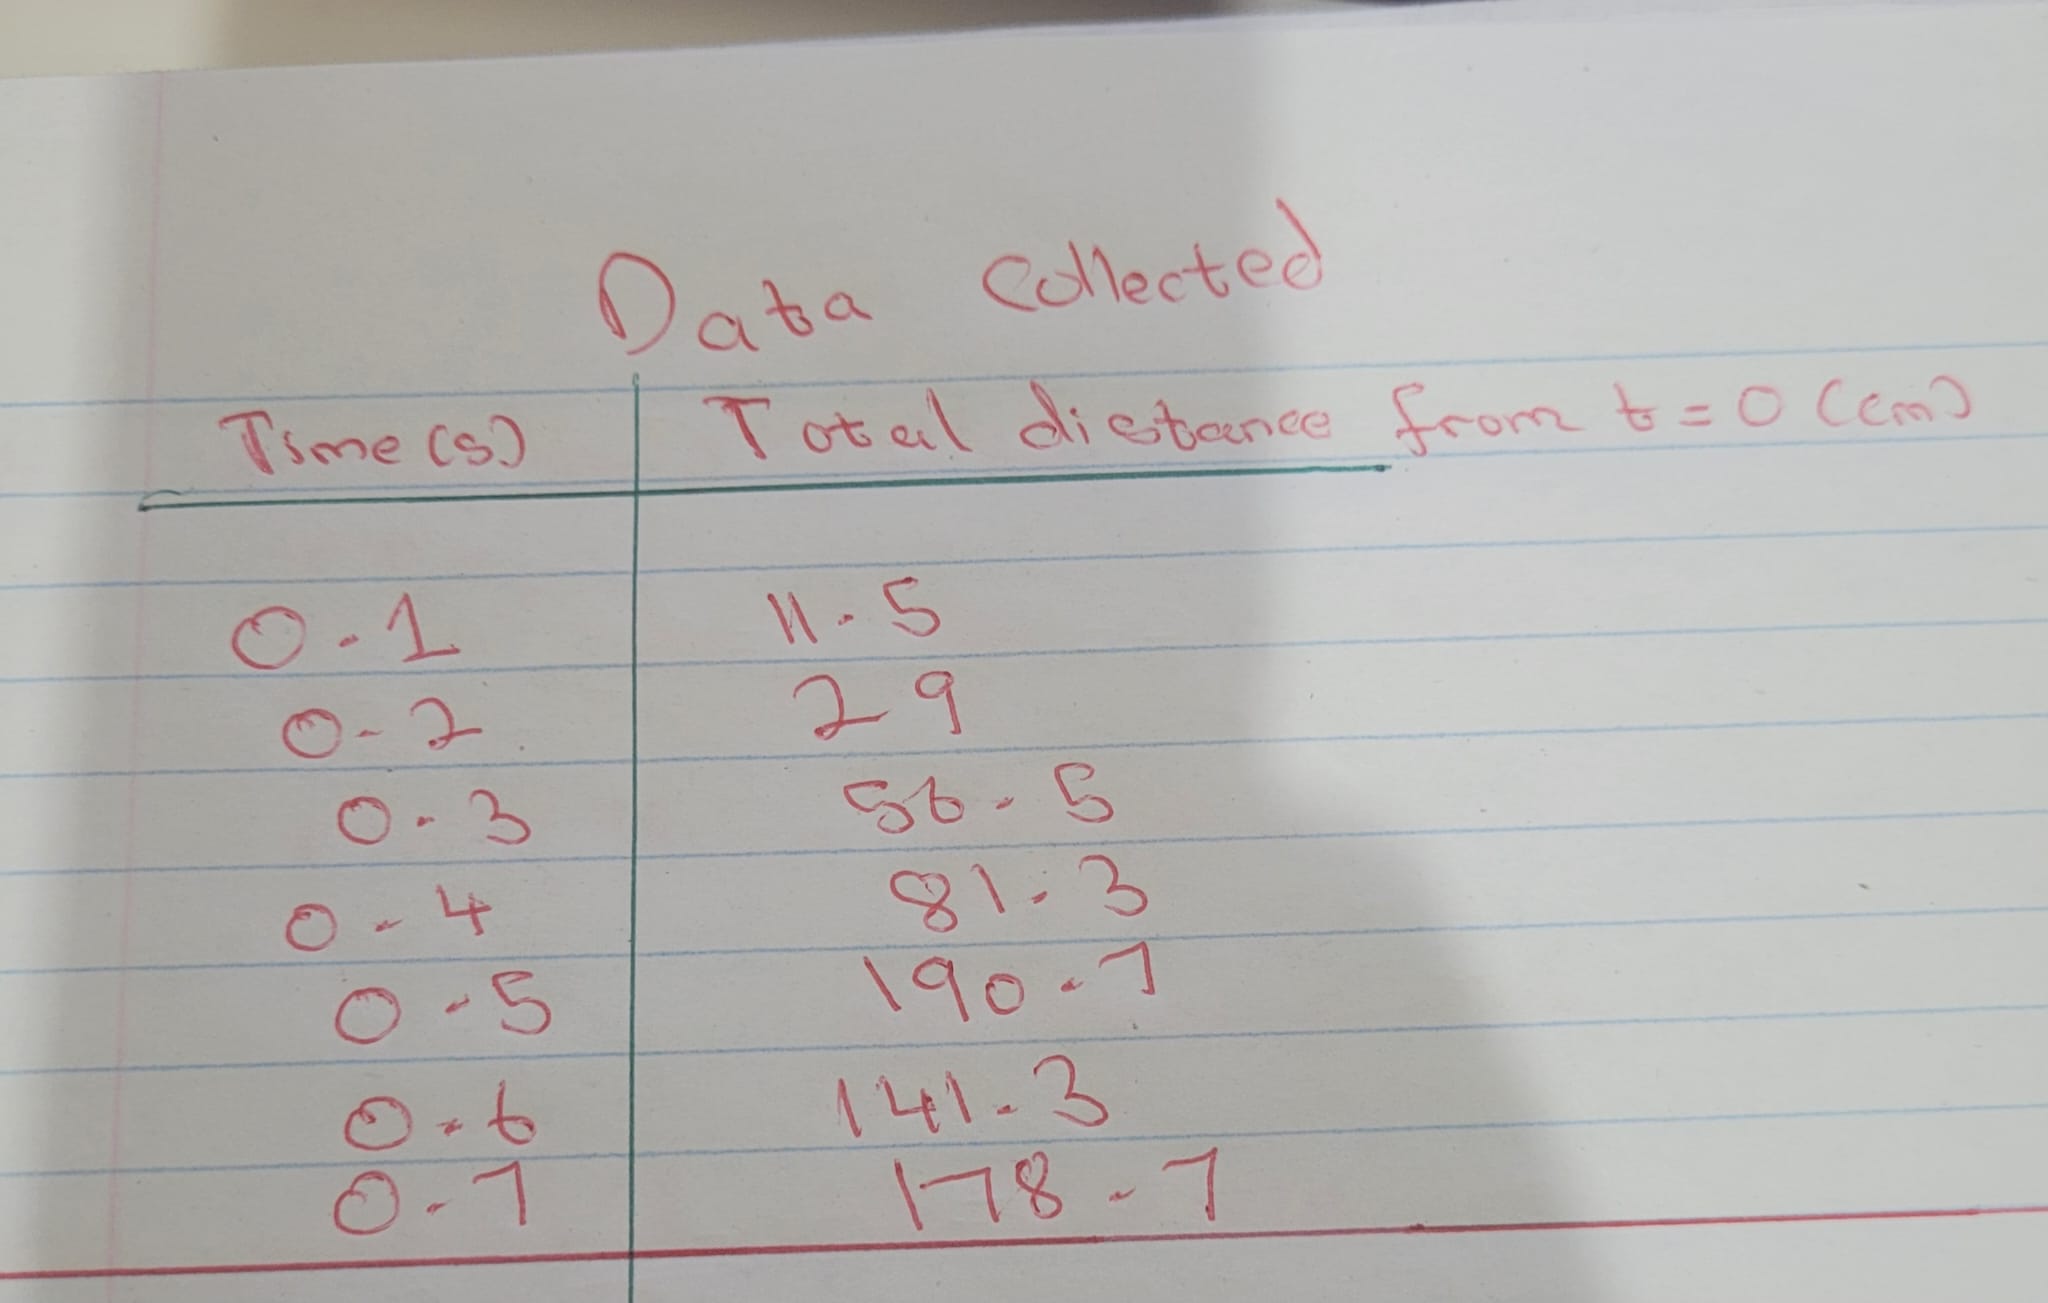 Data Collected
Time (s) Total distance from t = 0 (cm)
0.1 11.5
0.2 29
0.3 56.5
0.4 81.3
0.5 190.7
0.6 141.3
0.7 178.7